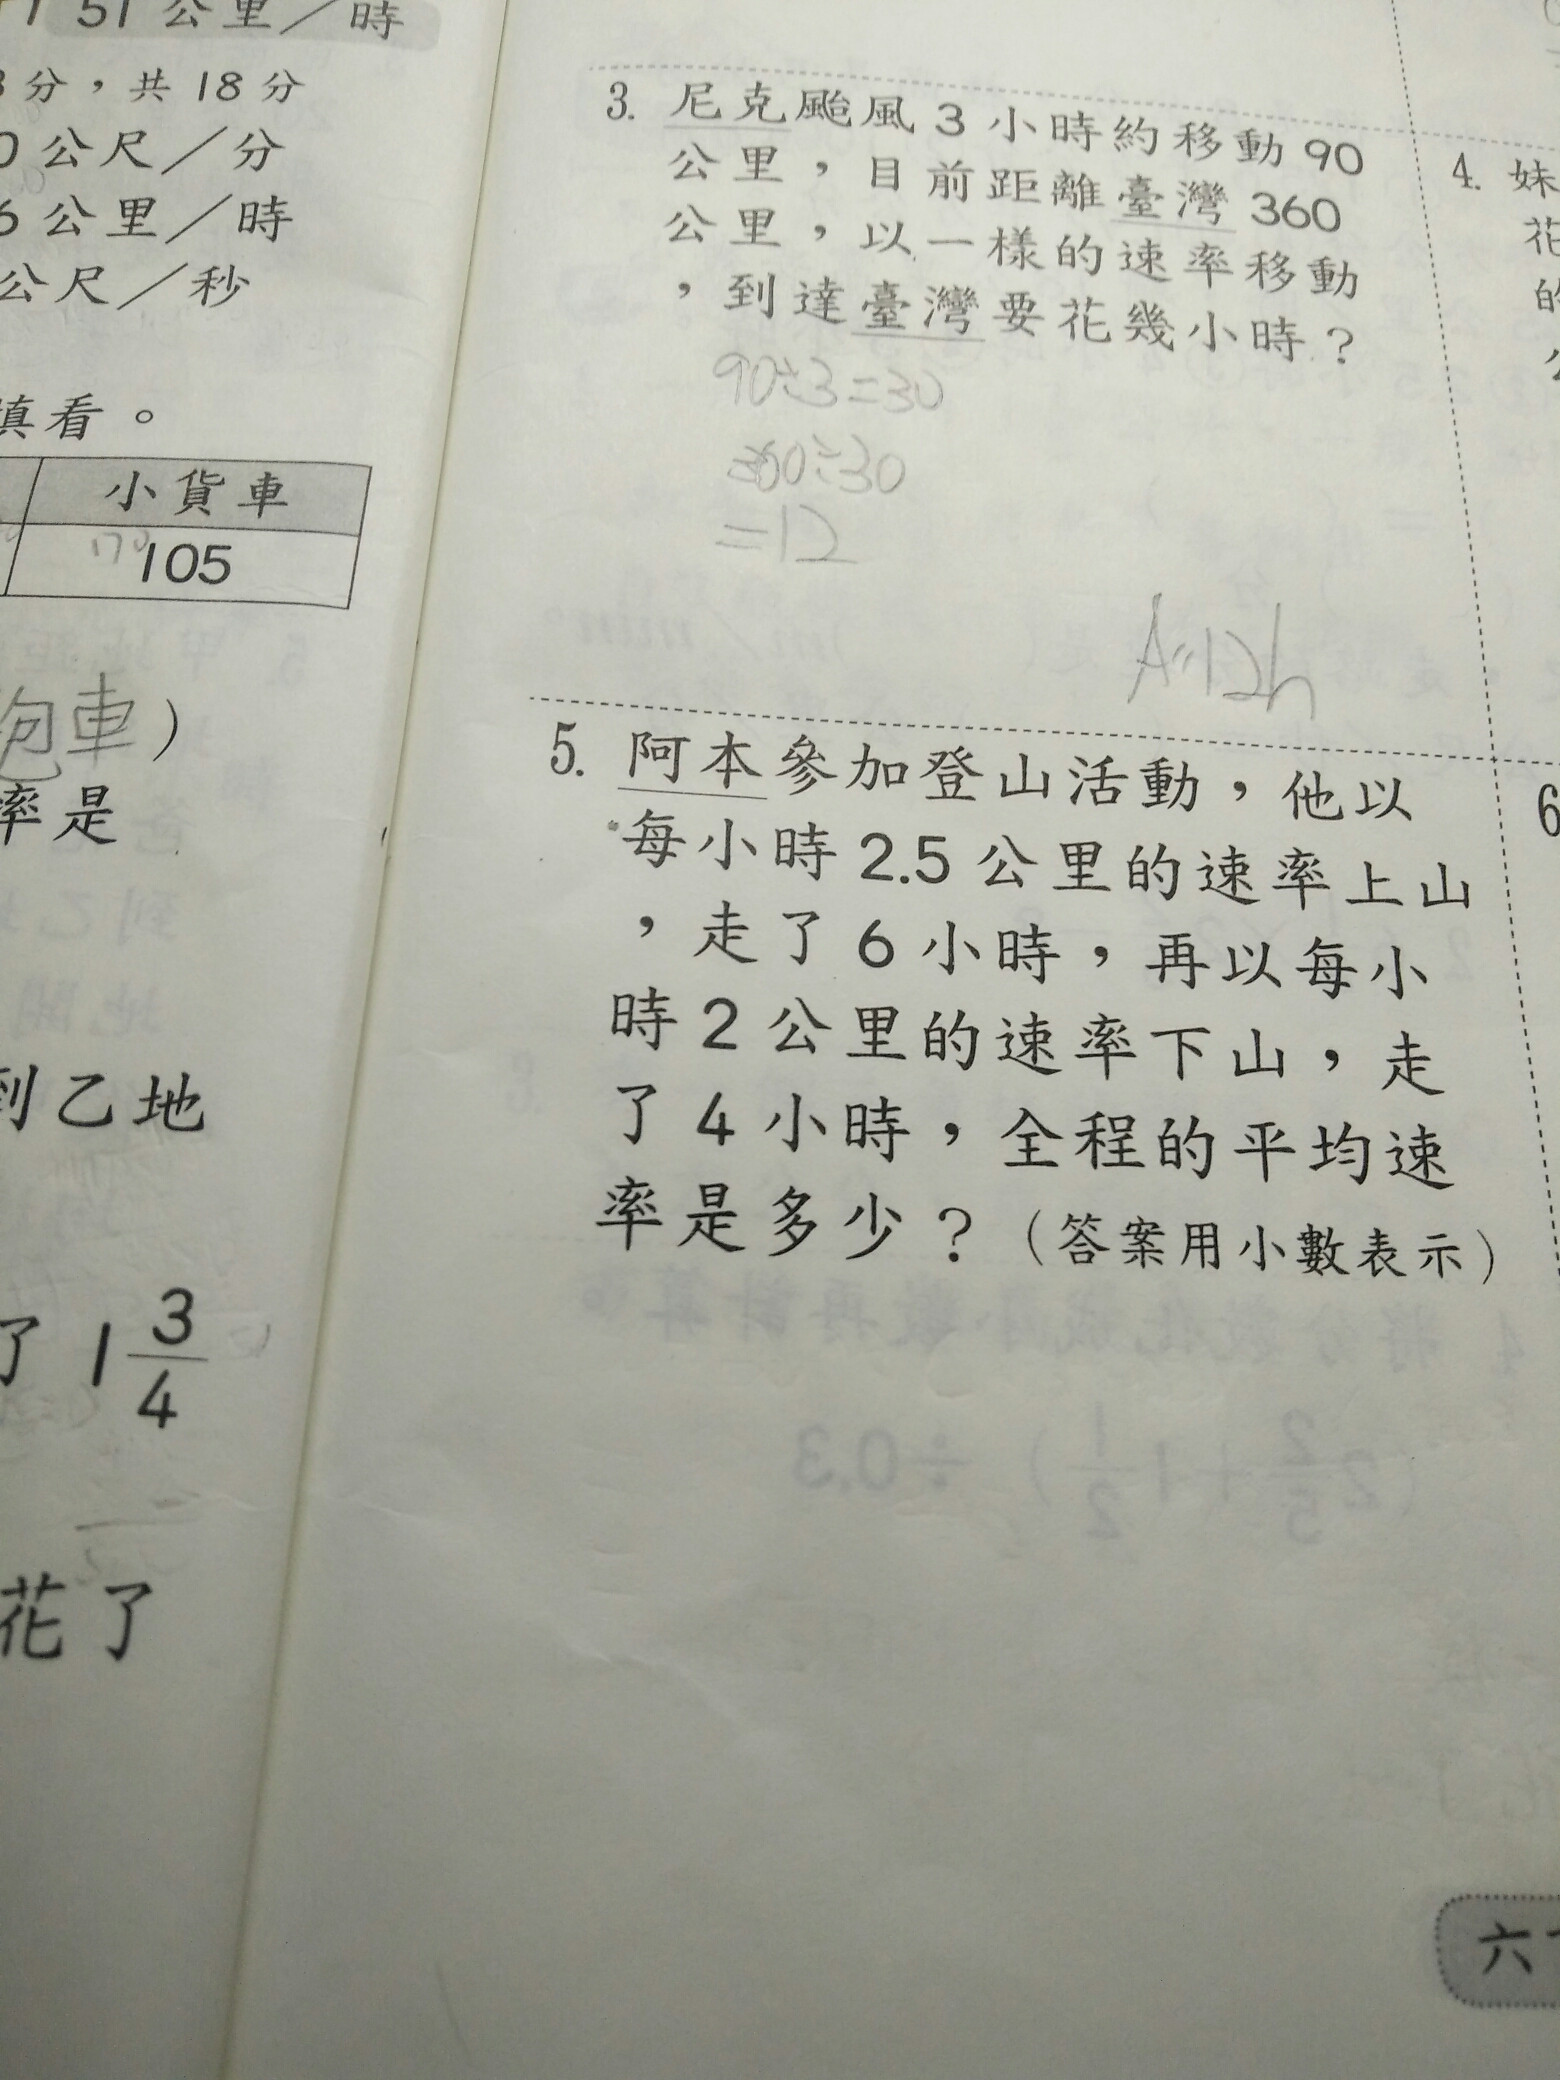 51 公里／時
分，共 18 分
0 公尺／分
6 公里／時
公尺／秒
填看。
小貨車
105
跑車）
率是
到乙地
了 1 3/4
花了
3. 尼克颱風 3 小時約移動 90
公里，目前距離臺灣 360
公里，以一樣的速率移動
，到達臺灣要花幾小時？
90÷3=30
360÷30
=12
A=12h
4. 妹
花
的
5. 阿本參加登山活動，他以
每小時 2.5 公里的速率上山
，走了 6 小時，再以每小
時 2 公里的速率下山，走
了 4 小時，全程的平均速
率是多少？（答案用小數表示）
6
六